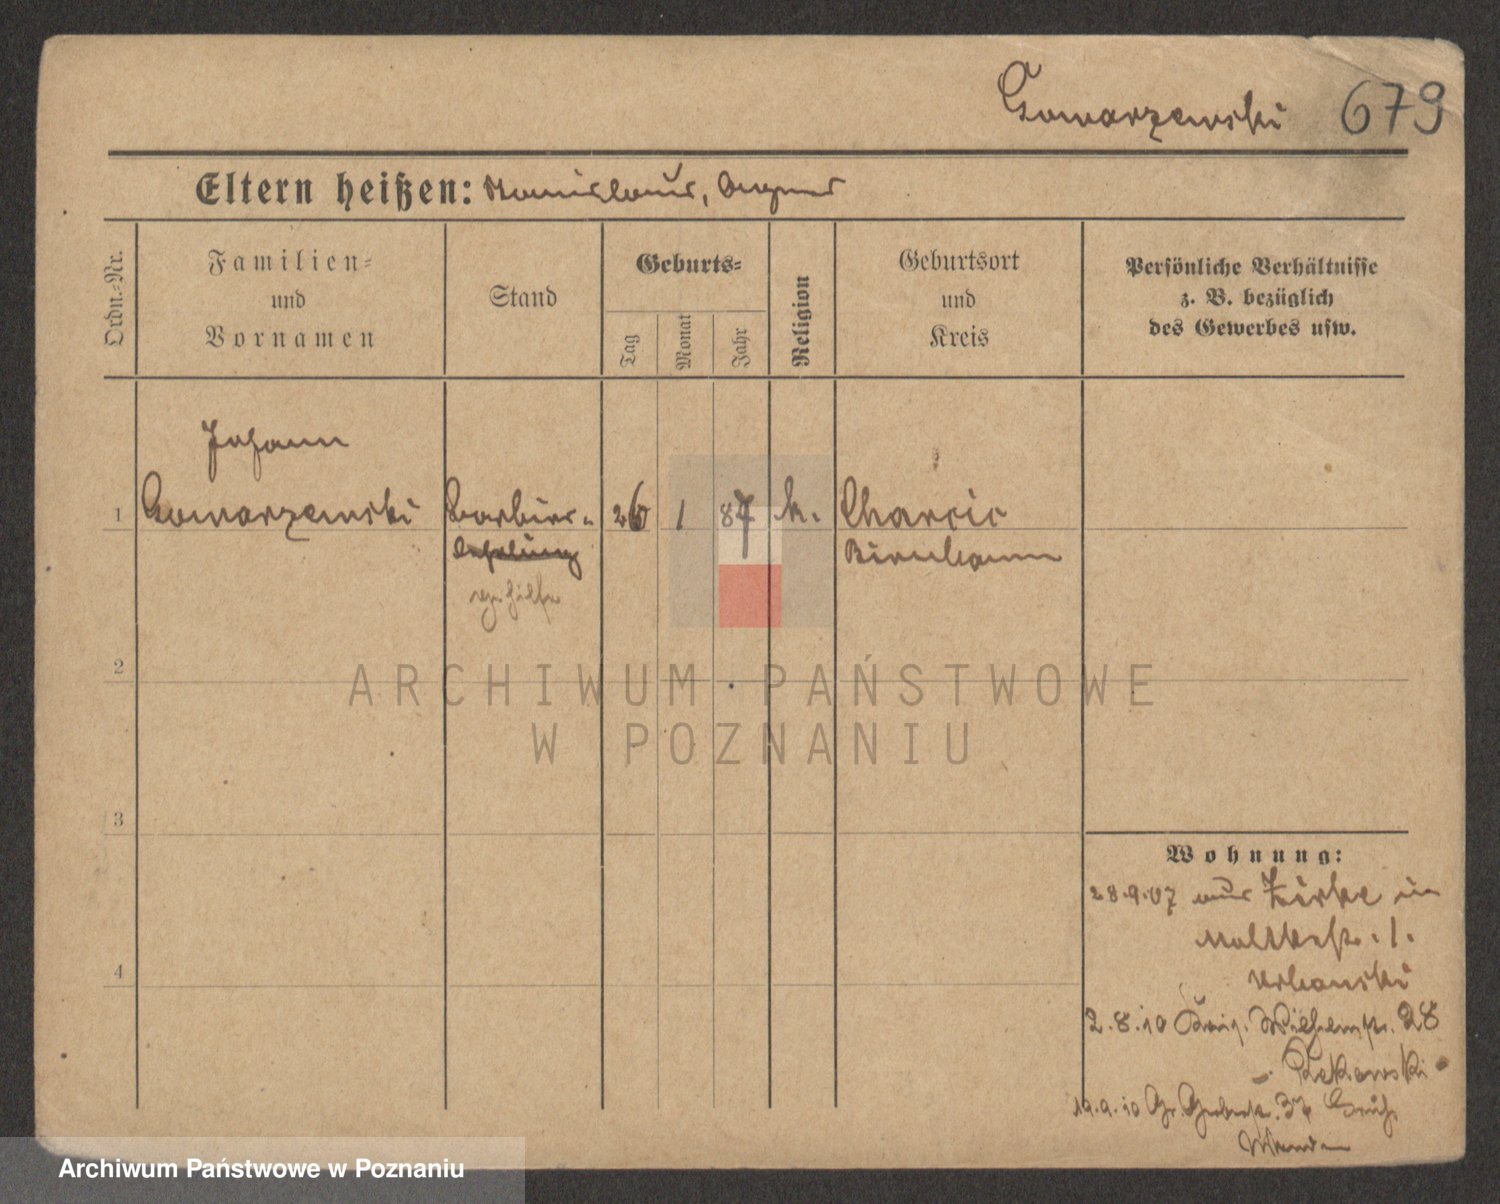 Gowarzewski 679
Eltern heißen: Stanislaus, Agnes
Ordn.-Nr.
Familien-
und
Vornamen
Stand
Geburts-
Tag
Monat
Jahr
Religion
Geburtsort
und
Kreis
Persönliche Verhältnisse
z. B. bezüglich
des Gewerbes usw.
Johann
1 Gowarzewski Barbier- 26 1 87 k. Charcic
Birnbaum
gehilfe
2
3
4
ARCHIWUM PAŃSTWOWE
W POZNANIU
Wohnung:
28.9.07 aus Zirke in
Moltkestr. 1.
Urbanski
2.8.10 König. Wilhelmstr. 28
19.9.10 Gr. 37
Archiwum Państwowe w Poznaniu